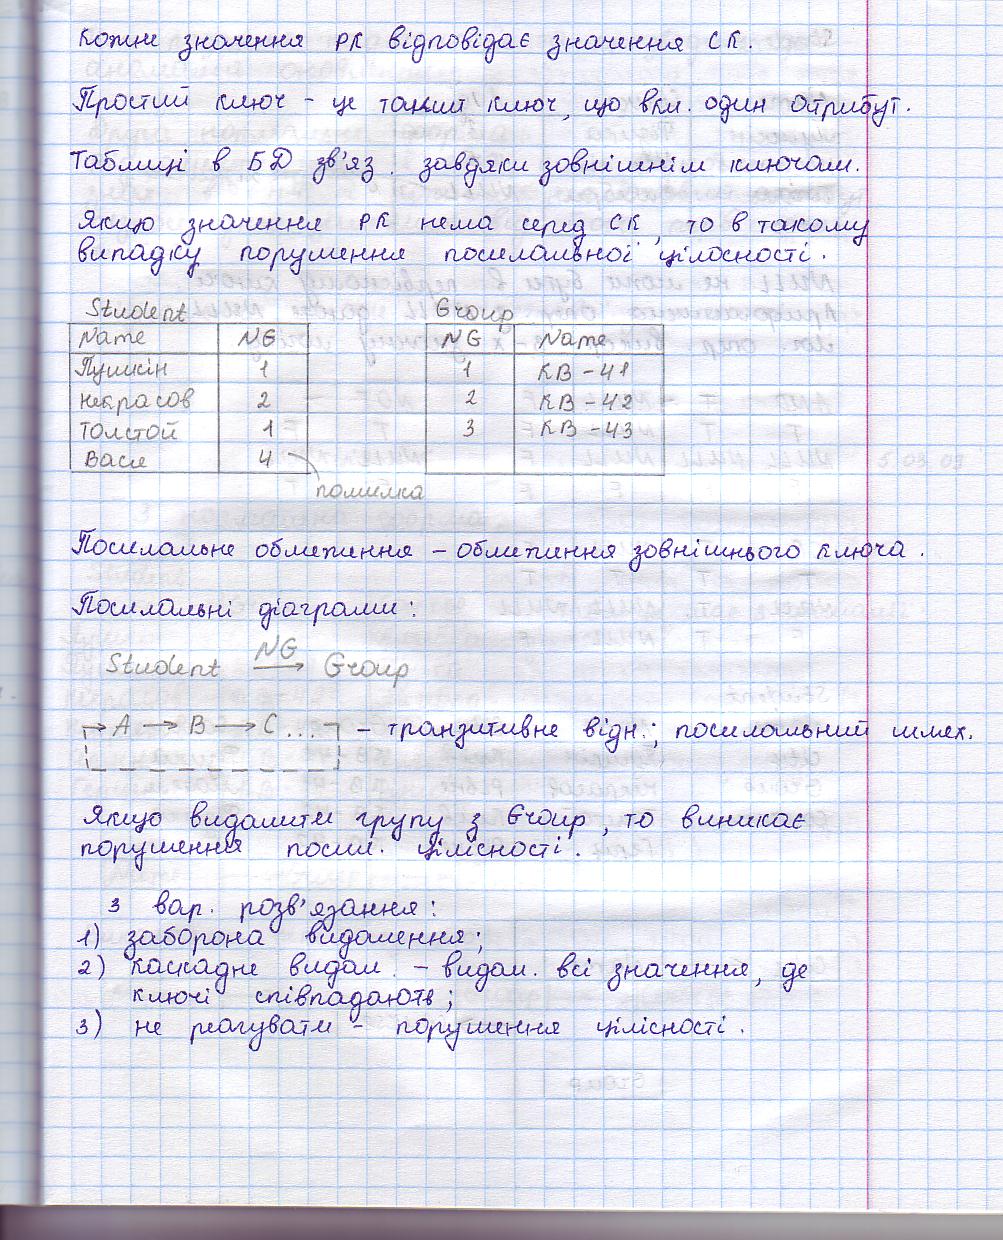 Кожне значення РК відповідає значення СК.
Простий ключ - це такий ключ, що вкл. один атрибут.
Таблиці в БД зв'яз. завдяки зовнішнім ключам.
Якщо значення РК нема серед СК, то в такому
випадку порушення посилальної цілосності.
Student Group
Name NG NG Name
Пушкін 1 1 КВ-41
Некрасов 2 2 КВ-42
Толстой 1 3 КВ-43
Вася 4
помилка
Посилальне обмеження - обмеження зовнішнього ключа.
Посилальні діаграми:
NG
Student → Group
→ A → B → C ... - транзитивне відн.; посилальний шлях.
Якщо видалити групу з Group, то виникає
порушення посил. цілісності.
3 вар. розв'язання:
1) заборона видалення;
2) каскадне видал. - видал. всі значення, де
ключі співпадають;
3) не реагувати - порушення цілісності.